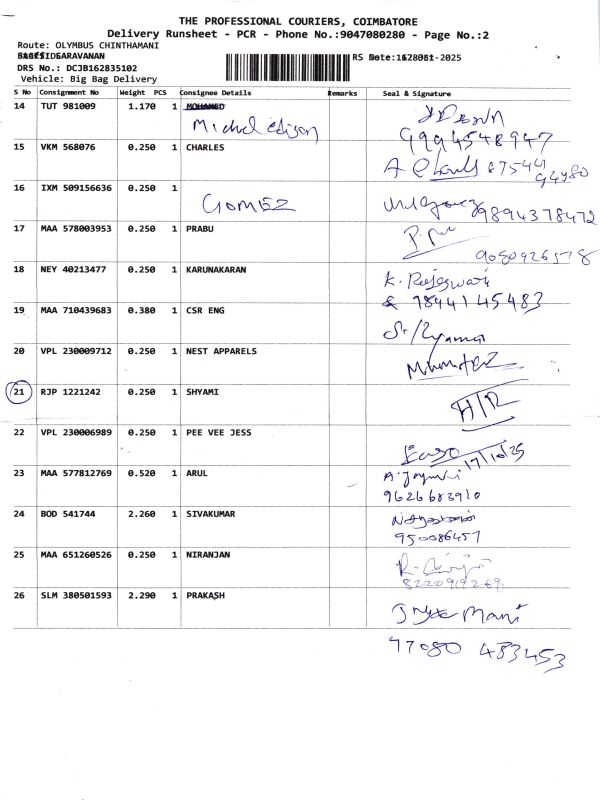 THE PROFESSIONAL COURIERS, COIMBATORE
Delivery Runsheet - PCR - Phone No.:9047080280 - Page No.:2
Route: OLYMBUS CHINTHAMANI
SARAVANAN
DRS No.: DCJB162835102
Vehicle: Big Bag Delivery
S No Consignment No Weight PCS Consignee Details Remarks Seal & Signature
14 TUT 981009 1.170 1 MOHAMED
Michel edison
9994548947
15 VKM 568076 0.250 1 CHARLES
A Charls 87544
94980
16 IXM 509156636 0.250 1
GOMEZ
9894378472
17 MAA 578003953 0.250 1 PRABU
9080926578
18 NEY 40213477 0.250 1 KARUNAKARAN
K. Rajeswari
7844145483
19 MAA 710439683 0.380 1 CSR ENG
20 VPL 230009712 0.250 1 NEST APPARELS
21 RJP 1221242 0.250 1 SHYAMI
H/R
22 VPL 230006989 0.250 1 PEE VEE JESS
17/10/25
23 MAA 577812769 0.520 1 ARUL
9626683910
24 BOD 541744 2.260 1 SIVAKUMAR
950086457
25 MAA 651260526 0.250 1 NIRANJAN
8220919268
26 SLM 380501593 2.290 1 PRAKASH
Mani
97080 483453